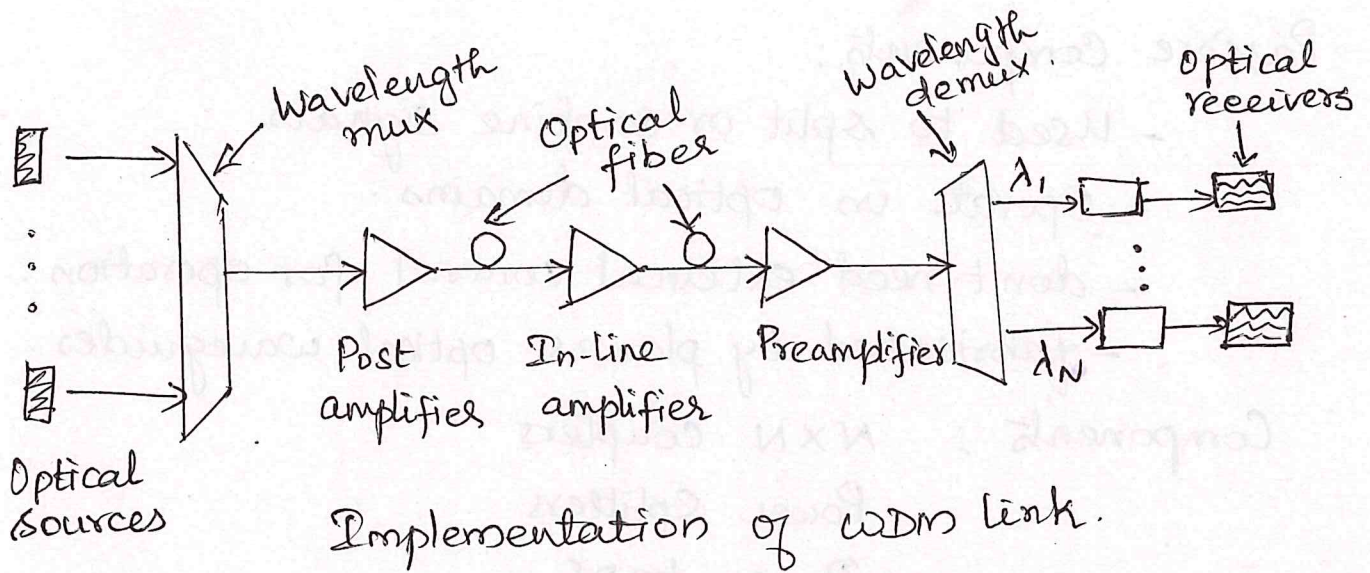 Wavelength
mux
Optical
fiber
Wavelength
demux.
Optical
receivers
λ1
λN
Post
amplifier
In-line
amplifier
Preamplifier
Optical
sources
Implementation of WDM link.